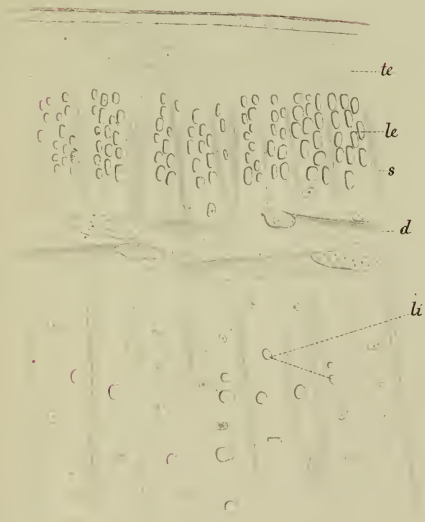 te
le
s
d
li